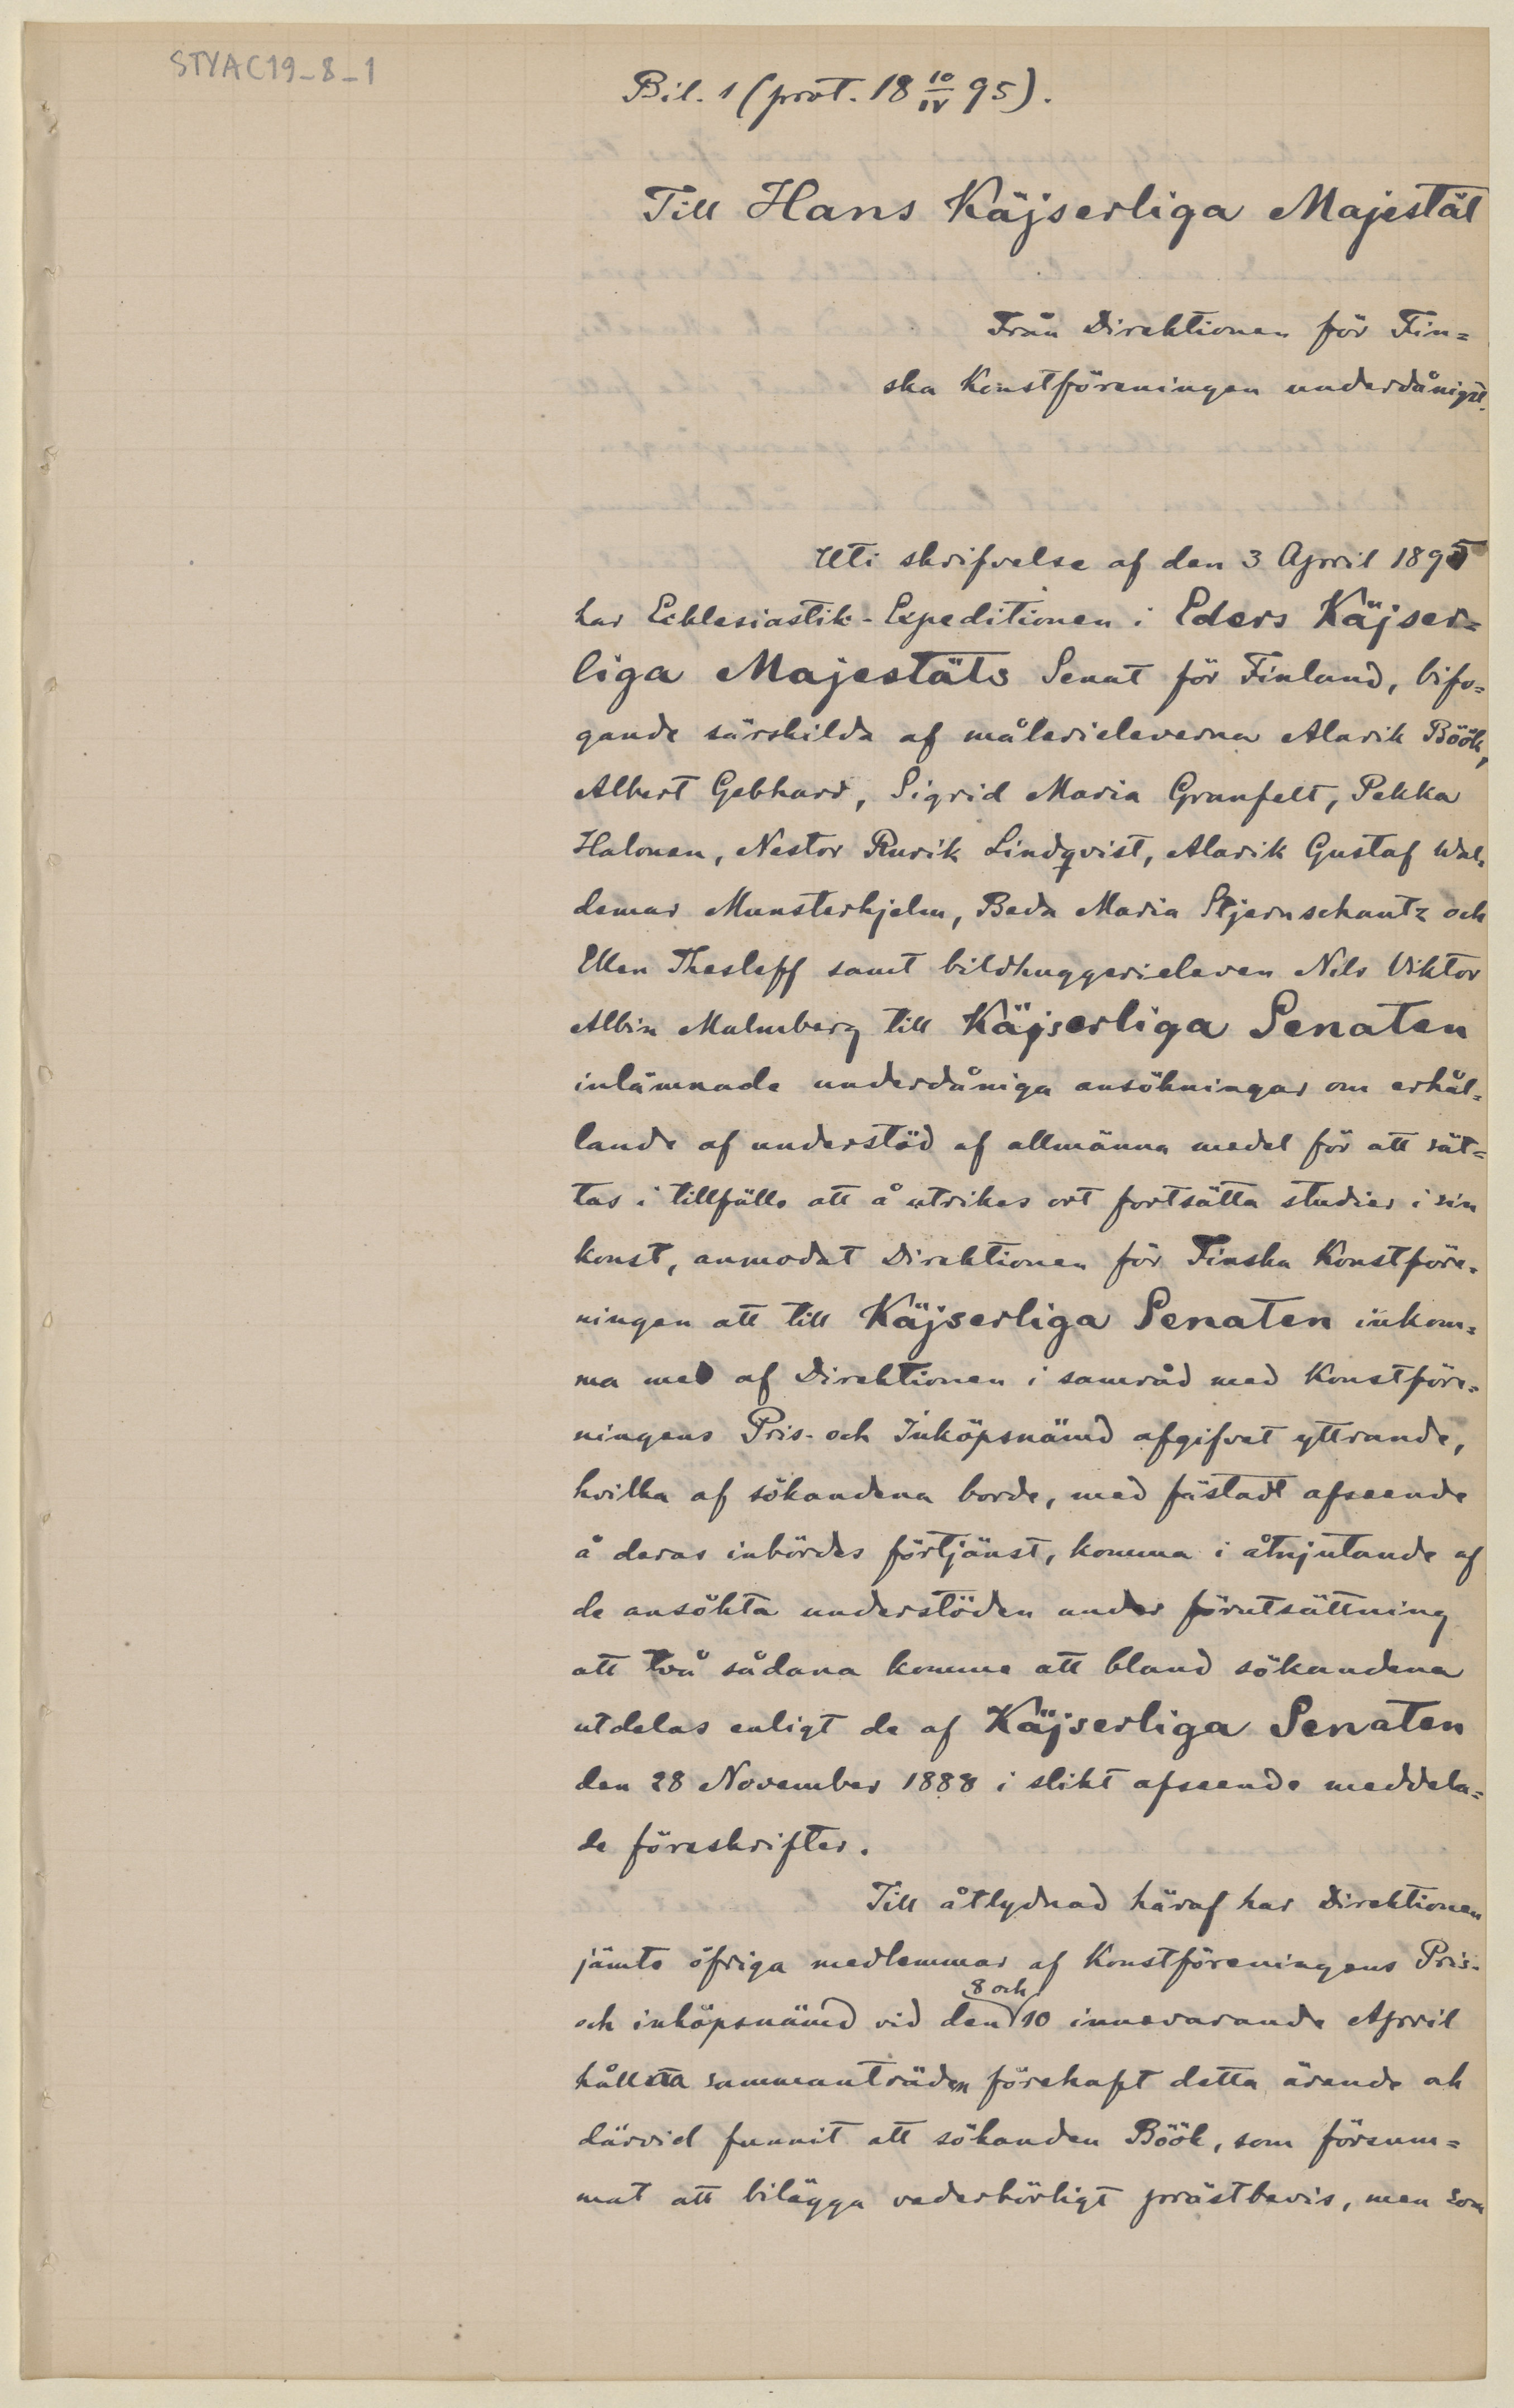 STYAC19_8_1
Bil. 1 (prot. 18 10/IV 95).
Till Hans Käjserliga Majestät
Från Direktionen för Fin=
ska Konstföreningen underdånigst.
Uti skrifvelse af den 3 April 1895
har Ecklesiastik-Expeditionen i Eders Käjser=
liga Majestäts Senat för Finland, bifo=
gande särskilda af målerieleverna Alarik Böök,
Albert Gebhard, Sigrid Maria Granfelt, Pekka
Halonen, Nestor Rurik Lindqvist, Alarik Gustaf Wal=
demar Munsterhjelm, Beda Maria Stjernschantz och
Ellen Thesleff samt bildhuggerieleven Nils Viktor
Albin Malmberg till Käjserliga Senaten
inlämnade underdåniga ansökningar om erhål=
lande af understöd af allmänna medel för att sät=
tas i tillfälle att å utrikes ort fortsätta studier i sin
konst, anmodat Direktionen för Finska Konstföre=
ningen att till Käjserliga Senaten inkom=
ma med af Direktionen i samråd med Konstföre=
ningens Pris- och Inköpsnämd afgifvet yttrande,
hvilka af sökandena borde, med fästadt afseende
å deras inbördes förtjänst, komma i åtnjutande af
de ansökta understöden under förutsättning
att två sådana komme att bland sökandena
utdelas enligt de af Käjserliga Senaten
den 28 November 1888 i slikt afseende meddela=
de föreskrifter.
Till åtlydnad häraf har Direktionen
jämte öfriga medlemmar af Konstföreningens Pris-
8 och
och inköpsnämd vid den 10 innevarande April
hållna sammanträden förehaft detta ärende och
därvid funnit att sökanden Böök, som försum=
mat att bilägga vederbörligt prästbevis, men som